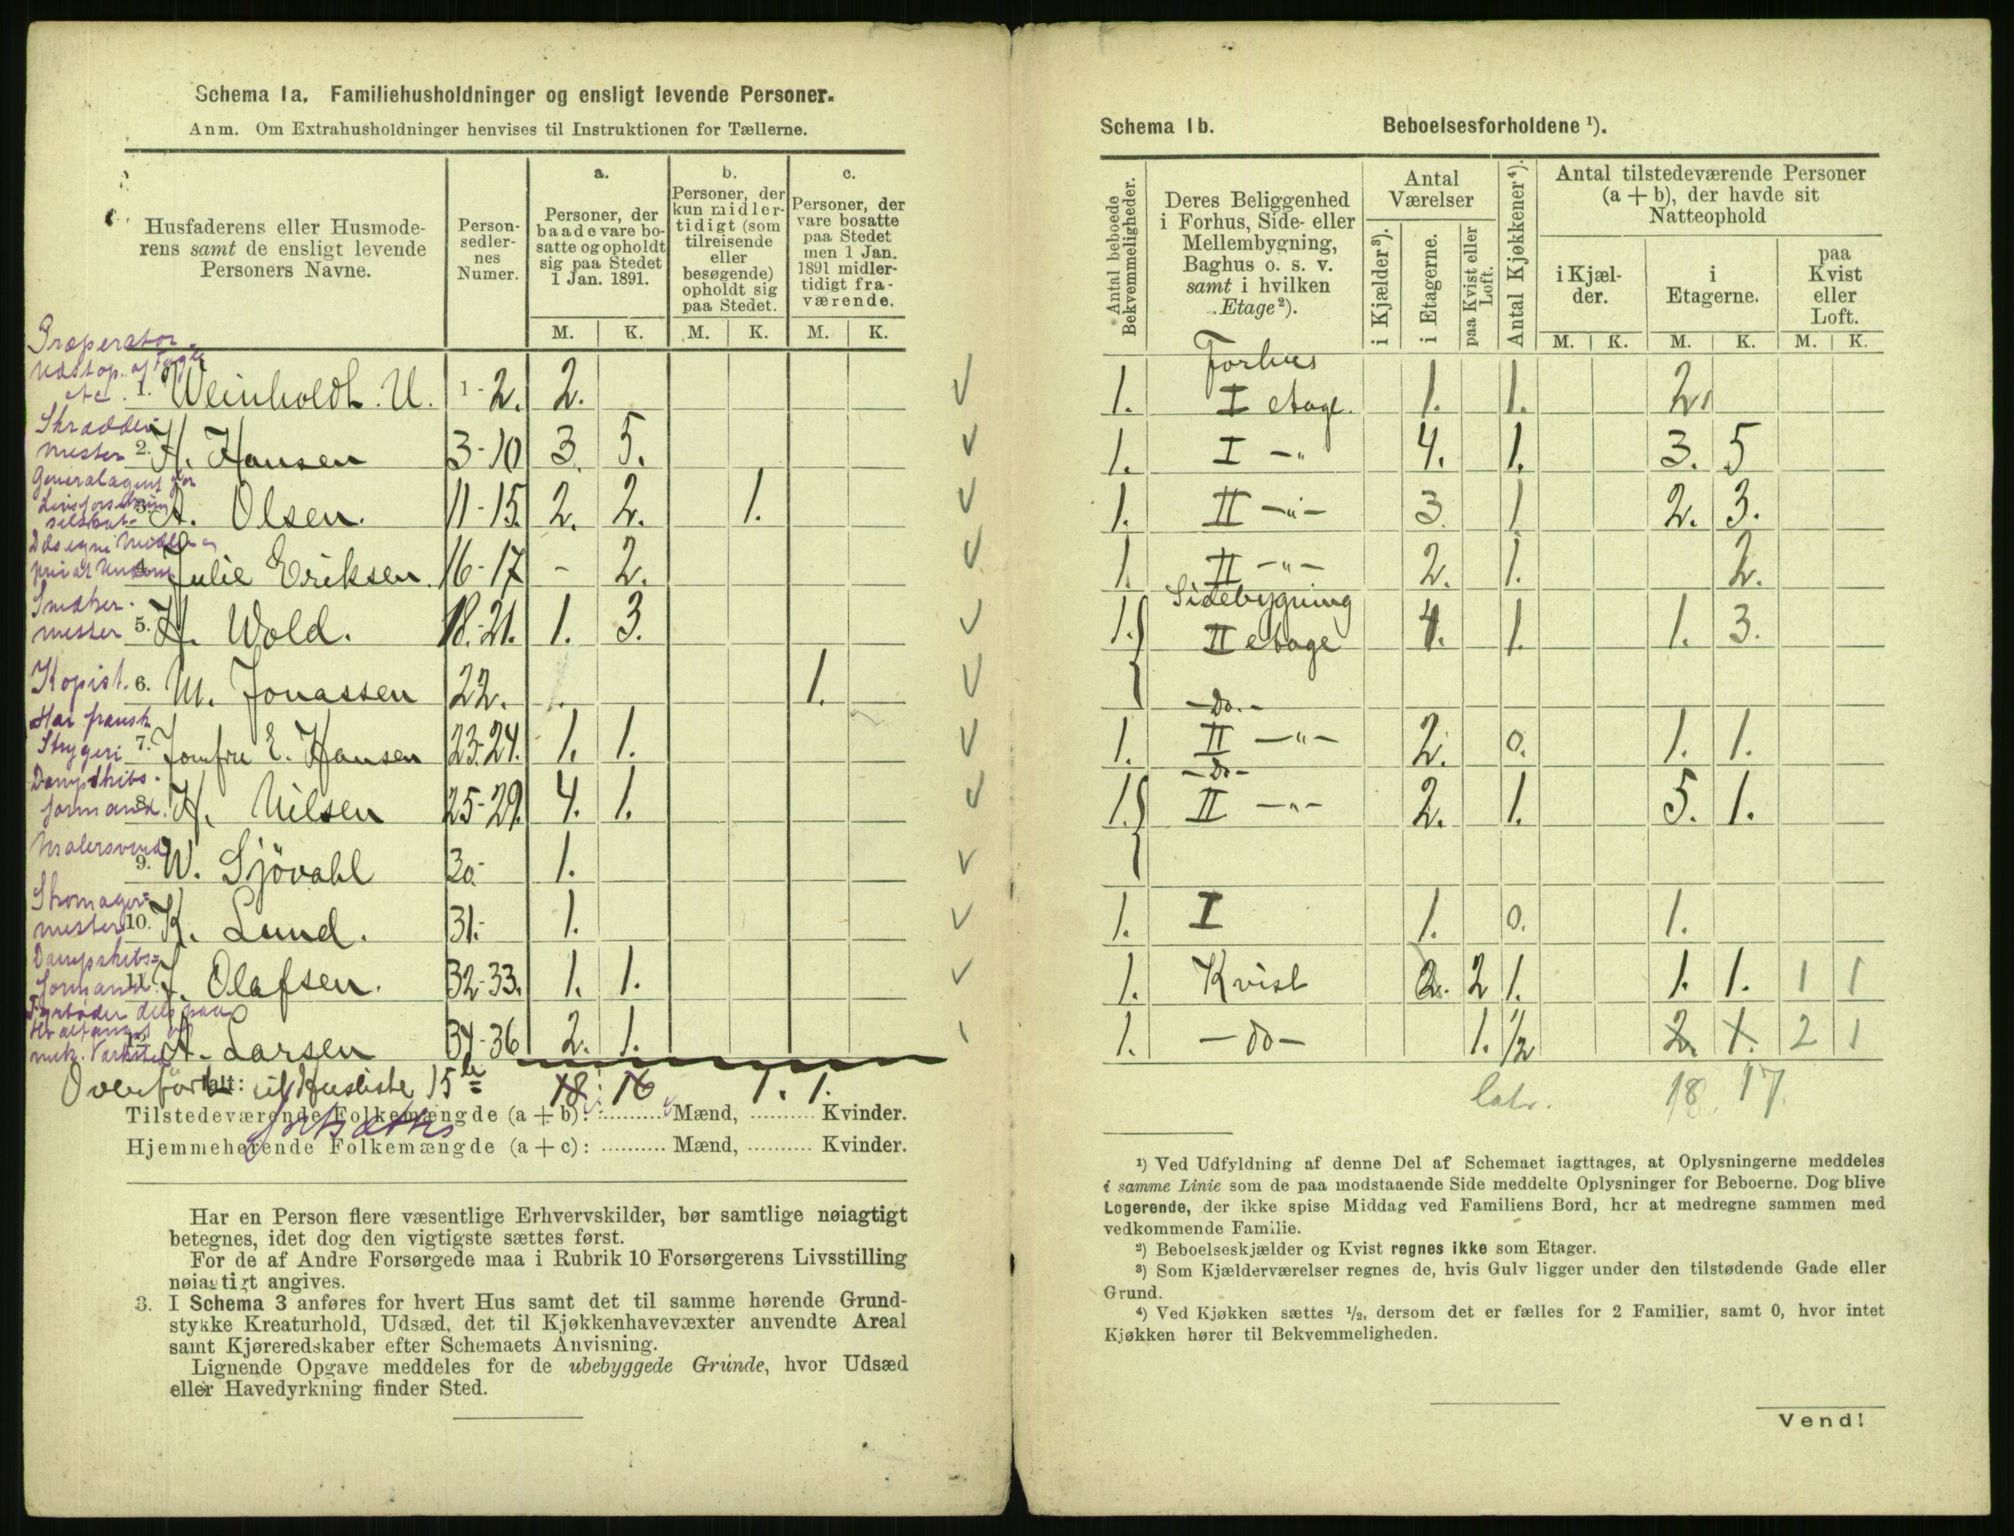 Schema 1a. Familiehusholdninger og ensligt levende Personer.
Anm. Om Extrahusholdninger henvises til Instruktionen for Tællerne.
Husfaderens eller Husmode-
rens samt de ensligt levende
Personers Navne.
Person-
sedler-
nes
Numer.
a.
Personer, der
baade vare bo-
satte og opholdt
sig paa Stedet
1 Jan. 1891.
b.
Personer, der
kun midler-
tidigt (som
tilreisende
eller
besøgende)
opholdt sig
paa Stedet.
c.
Personer, der
vare bosatte
paa Stedet
men 1 Jan.
1891 midler-
tidigt fra-
værende.
M. K. M. K. M. K.
Præperator
Udstop. af Fugle
etc. 1. Weinholdt. U. 1-2. 2.
Skrædder
mester 2. H. Hansen 3-10 3. 5.
Generalagent for
Livsforsikring
selskab 3. A. Olsen. 11-15. 2. 2. 1.
4. Julie Eriksen. 16-17 - 2.
Snedker
mester 5. H. Wold. 18.-21. 1. 3.
Kopist. 6. M. Jonassen 22. 1.
Har fransk
Strygeri 7. Jomfru E. Hansen 23-24. 1. 1.
Dampskibs-
formand. 8. H. Nilsen 25-29. 4. 1.
Malersvend 9. W. Sjövahl 30- 1.
Skomager=
mester 10. K. Lund. 31.- 1.
Dampskibs=
formand 11. J. Olafsen. 32-33. 1. 1.
Fyrbøder dels paa
Hvalfangst
mek. Værksted 12. A. Larsen 34-36 2. 1.
Overført til Husliste 15 18 16 1. 1.
Ialt:
Tilstedeværende Folkemængde (a + b): .......... Mænd, .......... Kvinder.
Hjemmehørende Folkemængde (a + c): .......... Mænd, .......... Kvinder.
Har en Person flere væsentlige Erhvervskilder, bør samtlige nøiagtigt
betegnes, idet dog den vigtigste sættes først.
For de af Andre Forsørgede maa i Rubrik 10 Forsørgerens Livsstilling
nøiagtigt angives.
3. I Schema 3 anføres for hvert Hus samt det til samme hørende Grund-
stykke Kreaturhold, Udsæd, det til Kjøkkenhavevæxter anvendte Areal
samt Kjøreredskaber efter Schemaets Anvisning.
Lignende Opgave meddeles for de ubebyggede Grunde, hvor Udsæd
eller Havedyrkning finder Sted.
Schema 1b. Beboelsesforholdene ¹).
Antal beboede
Bekvemmeligheder.
Deres Beliggenhed
i Forhus, Side- eller
Mellembygning,
Baghus o. s. v.
samt i hvilken
Etage²).
Antal
Værelser
i Kjælder³).
i Etagerne.
paa Kvist eller
Loft.
Antal Kjøkkener⁴).
Antal tilstedeværende Personer
(a + b), der havde sit
Natteophold
i Kjæl-
der.
i
Etagerne.
paa
Kvist
eller
Loft.
M. K. M. K. M. K.
Forhus
1. I etage. 1. 1. 2.
1. I -„ 4. 1. 3. 5
1. II -„- 3 1 2. 3.
1. II -„- 2. 1. 2.
Sidebygning
1. II etage 4. 1. 1. 3.
-do.-
1. II -„- 2. 0. 1. 1.
-do-
1. II -„- 2. 1. 5. 1.
1. I 1. 0. 1.
1. Kvist 2. 2 1. 1. 1. 1 1
1. -do- 1. 1/2 2. 1. 2 1
latr. 18. 17.
¹) Ved Udfyldning af denne Del af Schemaet iagttages, at Oplysningerne meddeles
i samme Linie som de paa modstaaende Side meddelte Oplysninger for Beboerne. Dog blive
Logerende, der ikke spise Middag ved Familiens Bord, her at medregne sammen med
vedkommende Familie.
²) Beboelseskjælder og Kvist regnes ikke som Etager.
³) Som Kjælderværelser regnes de, hvis Gulv ligger under den tilstødende Gade eller
Grund.
⁴) Ved Kjøkken sættes ½, dersom det er fælles for 2 Familier, samt 0, hvor intet
Kjøkken hører til Bekvemmeligheden.
Vend!